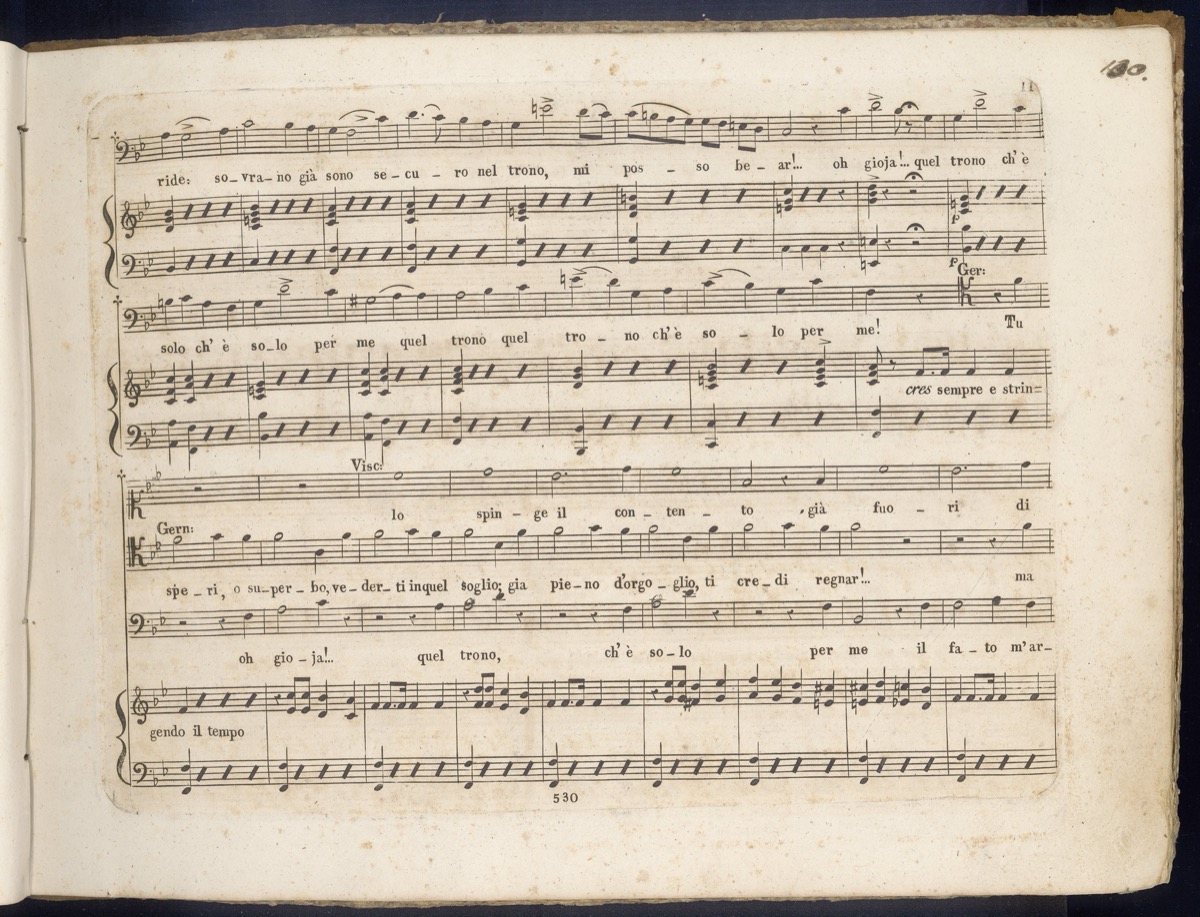 180.
11
ride: so_vra_no già sono se_cu_ro nel trono, mi pos_so be_ar!.. oh gioja!.. quel trono ch'è
p
p
Ger:
solo ch'è so_lo per me quel trono quel tro_no ch'è so_lo per me! Tu
cres sempre e strin=
Visc:
lo spin_ge il con_ten_to già fuo_ri di
Gern:
spe_ri, o su_per_bo, ve_der_ti in quel soglio; gia pie_no d'orgo_glio, ti cre_di regnar!.. ma
oh gio_ja!.. quel trono, ch'è so_lo per me il fa_to m'ar_
gendo il tempo
530